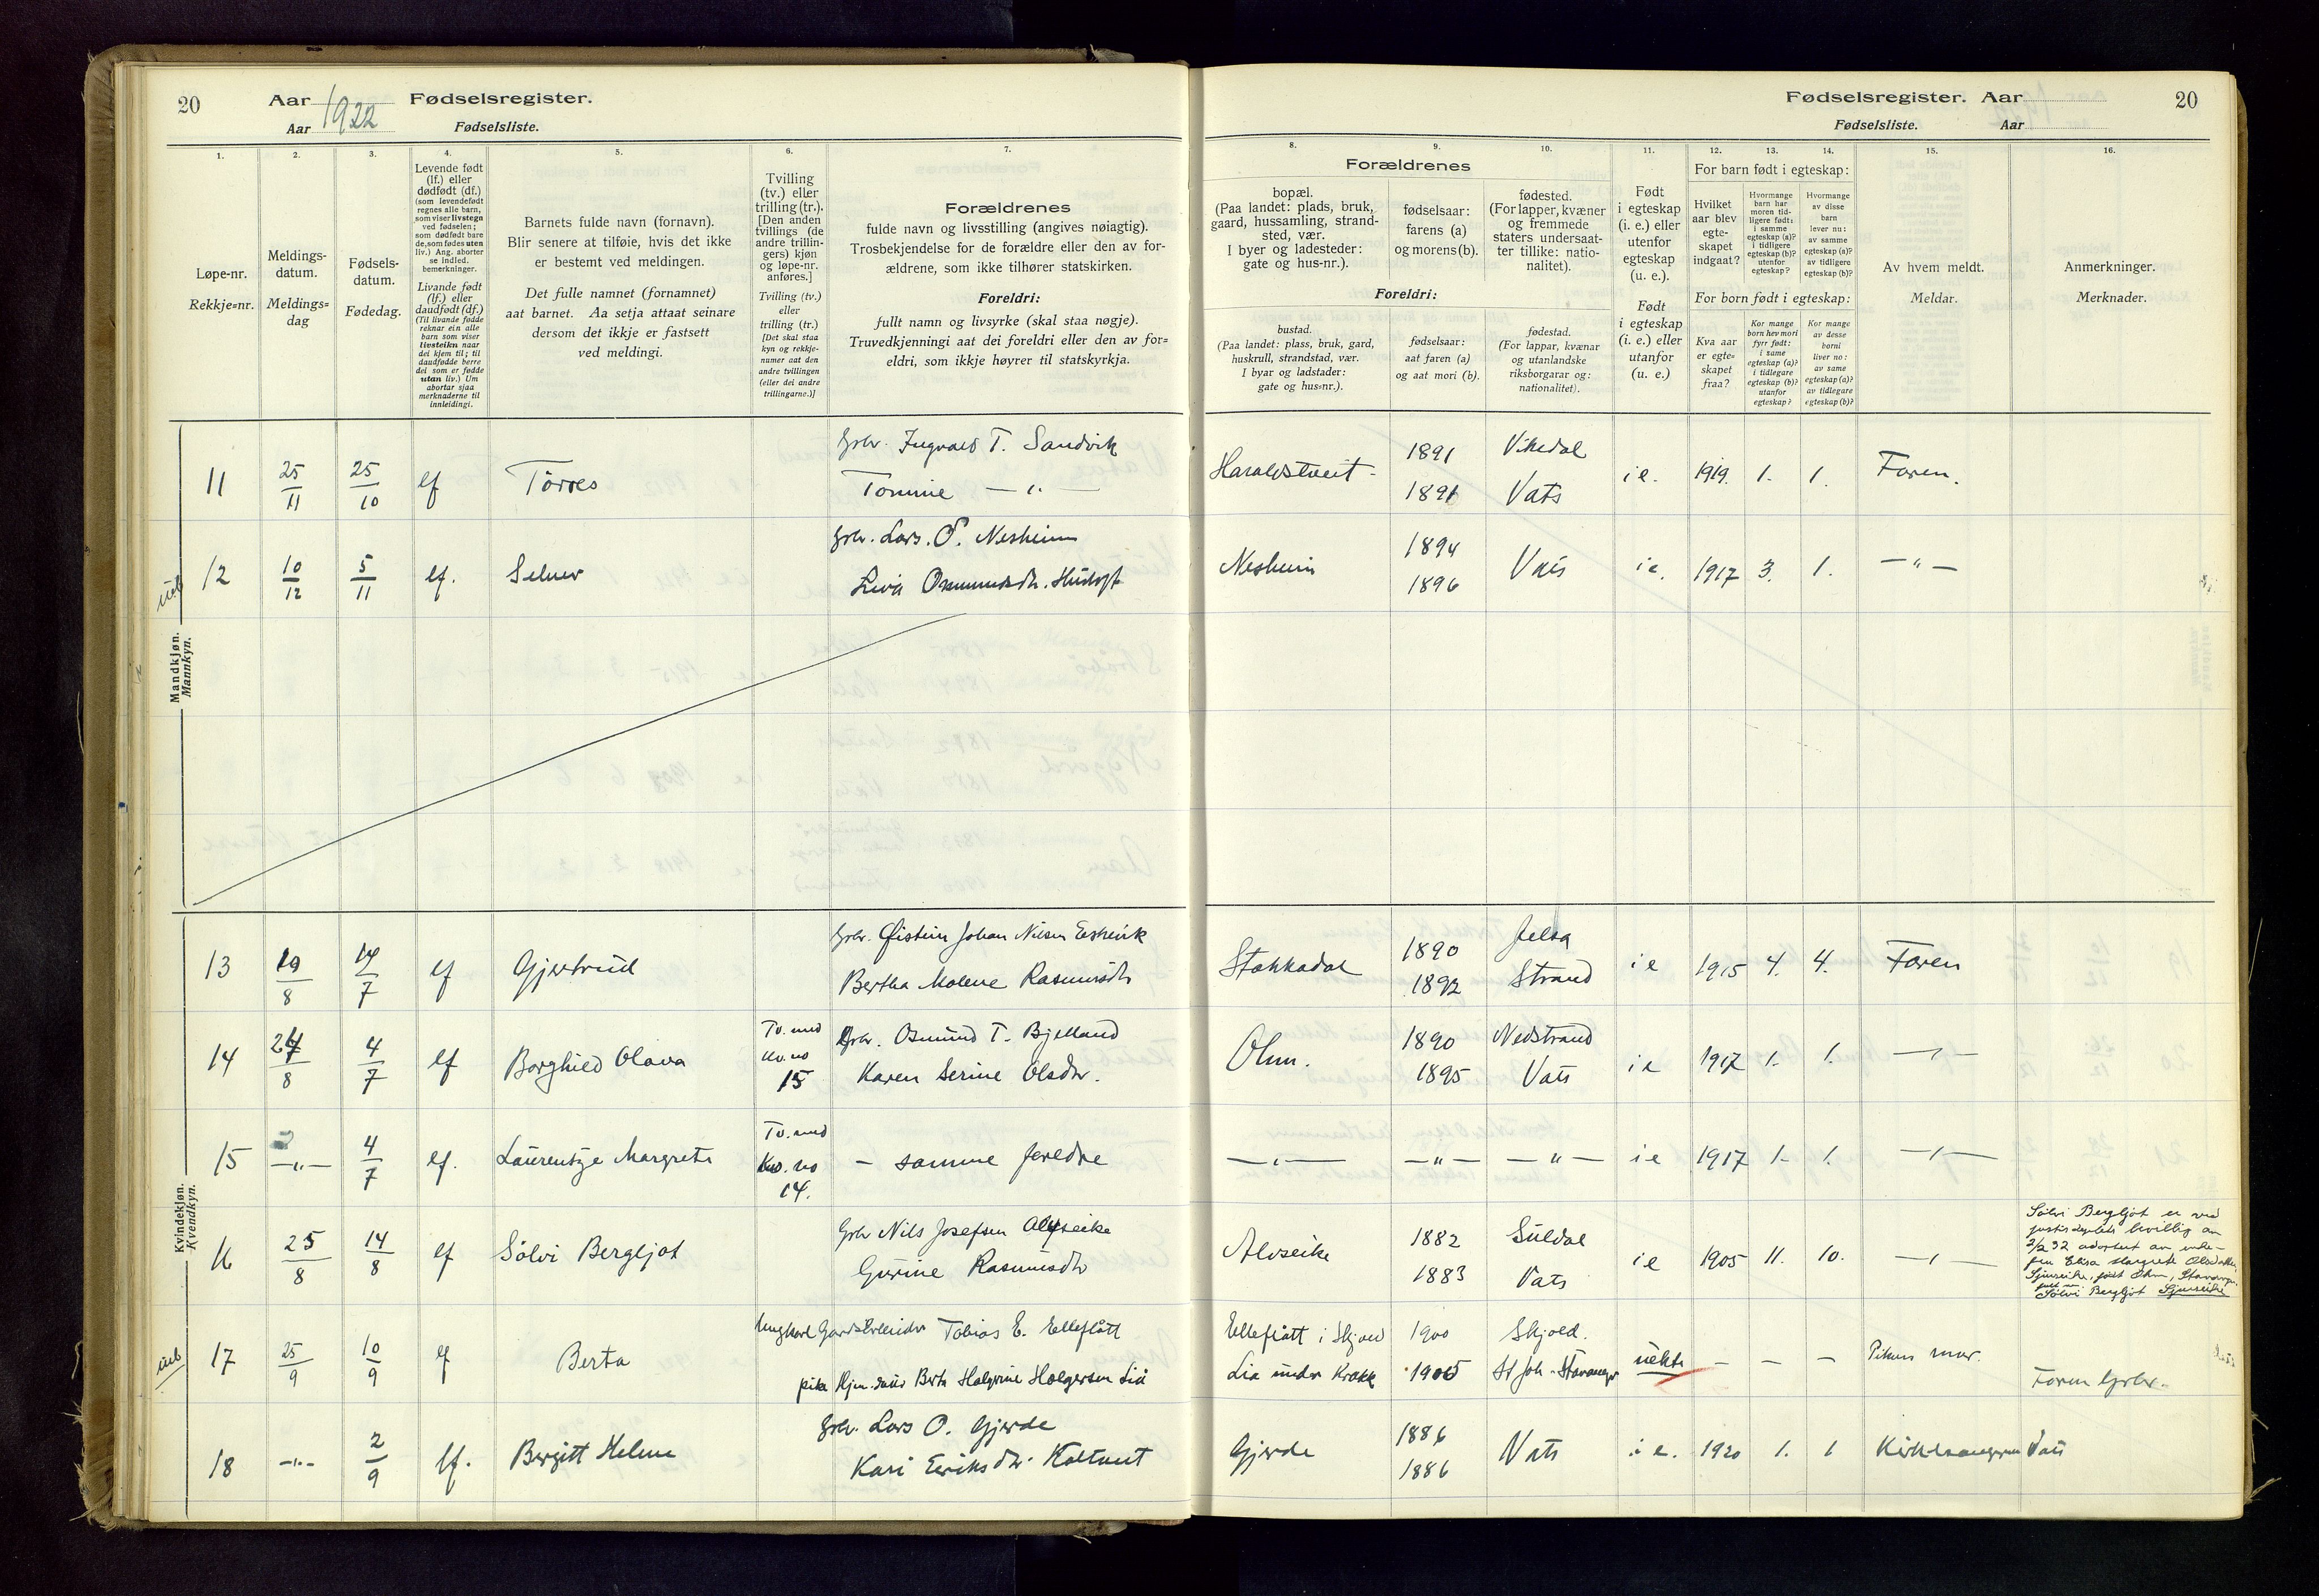 20 Aar 1922 Fødselsregister.
Aar Fødselsliste.
Fødselsregister. Aar 20
Fødselsliste. Aar
1.
Løpe-nr.
Rekkje=nr.
2.
Meldings-
datum.
Meldings=
dag
3.
Fødsels-
datum.
Fødedag.
4.
Levende født
(lf.) eller
dødfødt (df.)
(som levendefødt
regnes alle barn,
som viser livstegn
ved fødselen;
som dødfødt bare
de, som fødes uten
liv.) Ang. aborter
se indled.
bemerkninger.
Livande født
(lf.) eller
daudfødt (df.)
(Til livande fødde
reknar ein alle
barn som viser
livsteikn naar
dei kjem til; til
daudfødde berre
dei som er fødde
utan liv.) Um
abortar sjaa
merknaderne til
innleidingi.
5.
Barnets fulde navn (fornavn).
Blir senere at tilføie, hvis det ikke
er bestemt ved meldingen.
Det fulle namnet (fornamnet)
aat barnet. Aa setja attaat seinare
dersom det ikkje er fastsett
ved meldingi.
6.
Tvilling
(tv.) eller
trilling (tr.).
[Den anden
tvillings (de
andre trillin-
gers) kjøn
og løpe-nr.
anføres.]
Tvilling (tv.)
eller
trilling (tr.)
[Det skal staa
kyn og rekkje-
numer aat den
andre tvillingen
(eller dei andre
trillingarne.)]
7.
Forældrenes
fulde navn og livsstilling (angives nøiagtig).
Trosbekjendelse for de forældre eller den av for-
ældrene, som ikke tilhører statskirken.
Foreldri:
fullt namn og livsyrke (skal staa nøgje).
Truvedkjenningi aat dei foreldri eller den av for=
eldri, som ikkje høyrer til statskyrkja.
8.
Forældrenes
bopæl.
(Paa landet: plads, bruk,
gaard, hussamling, strand-
sted, vær.
I byer og ladesteder:
gate og hus-nr.).
Foreldri:
bustad.
(Paa landet: plass, bruk, gard,
huskrull, strandstad, vær.
I byar og ladstader:
gate og hus=nr.).
9.
fødselsaar:
farens (a)
og morens (b).
fødselsaar:
aat faren (a)
og aat mori (b).
10.
fødested.
(For lapper, kvæner
og fremmede
staters undersaat-
ter tillike: natio-
nalitet).
fødestad.
(For lappar, kvænar
og utanlandske
riksborgarar og:
nationalitet).
11.
Født
i egteskap
(i. e.) eller
utenfor
egteskap
(u. e.).
Født
i egteskap
(i. e.) eller
utanfor
(u. e.)
12. 13. 14.
For barn født i egteskap:
Hvilket
aar blev
egte-
skapet
indgaat?
Hvormange
barn har
moren tid-
ligere født:
i samme
egteskap (a)?
i tidligere
egteskap (b)?
utenfor
egteskap?
Hvormange
av disse
barn
lever nu:
av samme
egteskap (a)?
av tidligere
egteskap (b)?
For born født i egteskap:
Kva aar
er egte=
skapet
fraa?
Kor mange
born hev mori
fyrr født:
i same
egteskap (a)?
i tidlegare
egteskap (b)?
utanfor
egteskap?
Kor mange
av desse
borni
liver no:
av same
egteskap (a)?
av tidlegare
egteskap (b)?
15.
Av hvem meldt.
Meldar.
16.
Anmerkninger.
Merknader.
Mandkjøn.
Mannkyn.
Grbr. Ingvald T. Sandvik
11 25/11 25/10 lf Tòrres Tomine —"— Haraldstveit 1891 1891 Vikedal Vats i e. 1919. 1. 1. Faren.
Grbr. Lars. O. Nesheim
12 10/12 5/11 lf. Selmer Nesheim 1894 1896 Vats i e. 1917 3. 1. —"—
Kvindekjøn.
Kvendkyn.
Grbr. Øistein Johan Nilsen Eskevik
13 19/8 14/7 lf Gjertrud Bertha Malene Rasmusdtr Stakkadal 1890 1892 Jelsa Strand i e 1915 4. 4. Faren
14 24/8 4/7 lf Borghild Olava Tv. med kv. no 15 Grbr. Osmund T. Bjelland
Karen Serine Olsdtr. Ohm. 1890 1895 Nedstrand Vats i e 1917 1. 1. —"—
15 —"— 4/7 lf. Laurentze Margrete Tv. med Kv. no 14. – samme foreldre —"— —"— —"— i e 1917 1. 1. —"—
16 25/8 14/8 lf Sölvi Bergljot Grbr Nils Josefsen Alvseike
Gurine Rasmusdtr Alvseike 1882 1883 Suldal Vats i e 1905 11. 10. —"—
Sölvi Bergljot er ved
2/2 32 adoptert av enke-
fru Elisa Margrete
Sölvi Bergljot
17 25/9 10/9 lf Berta Ungkarl Gardsarbeider Tobias E. Elleflått
pike Berta Holgersen Lia
Elleflått i Skjold 1900 Skjold.
Lia under Krakk 1905 St Joh. Stavanger uekte – – – Pikens mor.
Faren Grbr.
18 —"— 2/9 lf. Bergitt Helene Grbr. Lars O. Gjerde
Kari Eriksdtr. Gjerde 1886 1886 Vats i e. 1920 1. 1 Vats